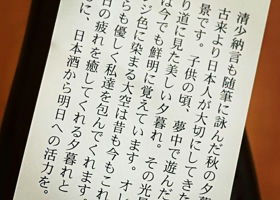 清少納言も随筆に詠んだ秋の夕暮
古来より日本人が大切にしてきた
景です。子供の頃、夢中で遊んだ
り道に見た美しい夕暮れ。その光
は今でも鮮明に覚えています。オレ
ジ色に染まる大空は昔も今もこれ
らも優しく私達を包んでくれます。
日の疲れを癒してくれる夕暮れと
に、日本酒から明日への活力を。